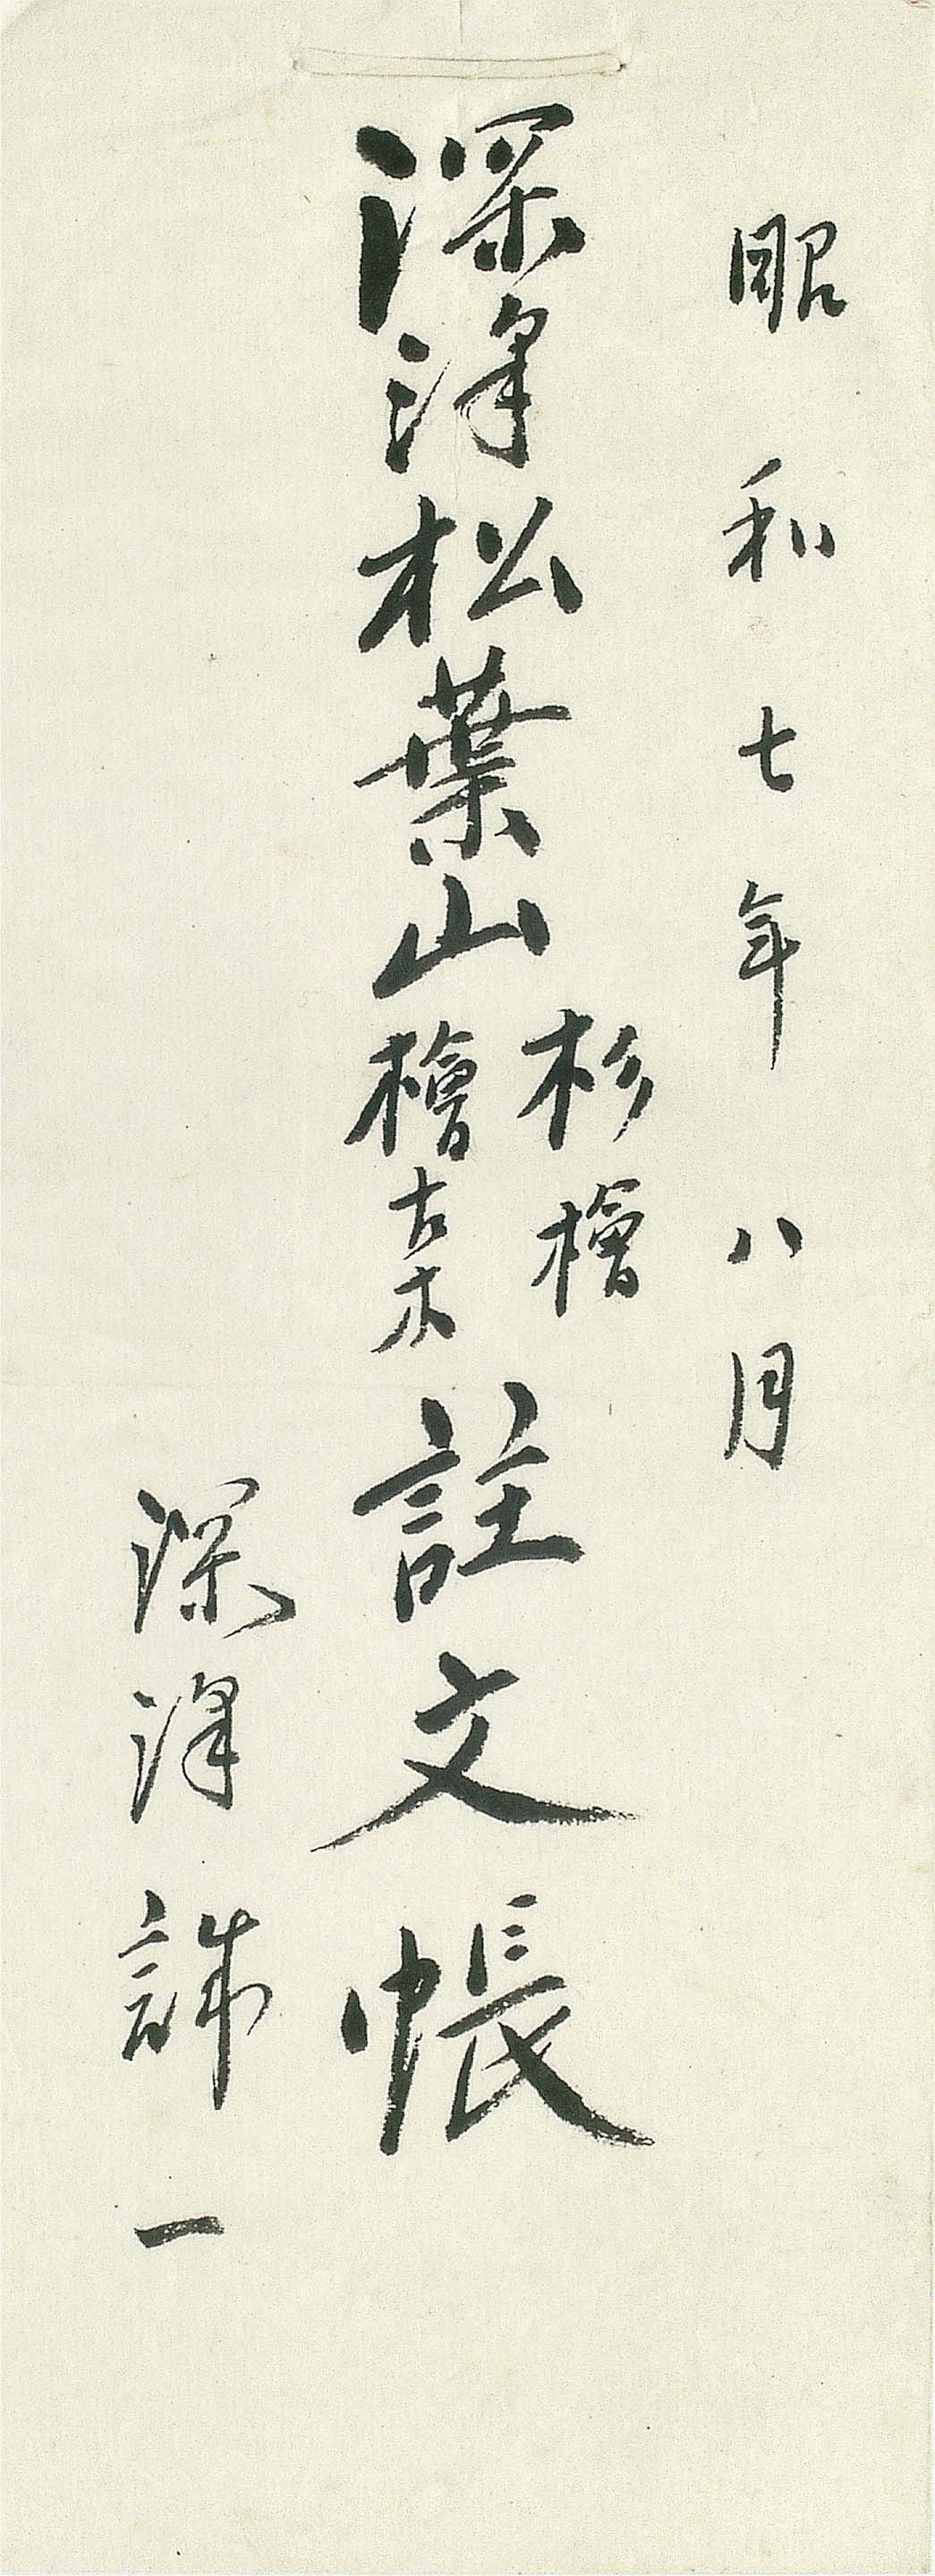 昭和七年八月
深澤松葉山
杉檜
檜古木
註文帳
深澤誠一